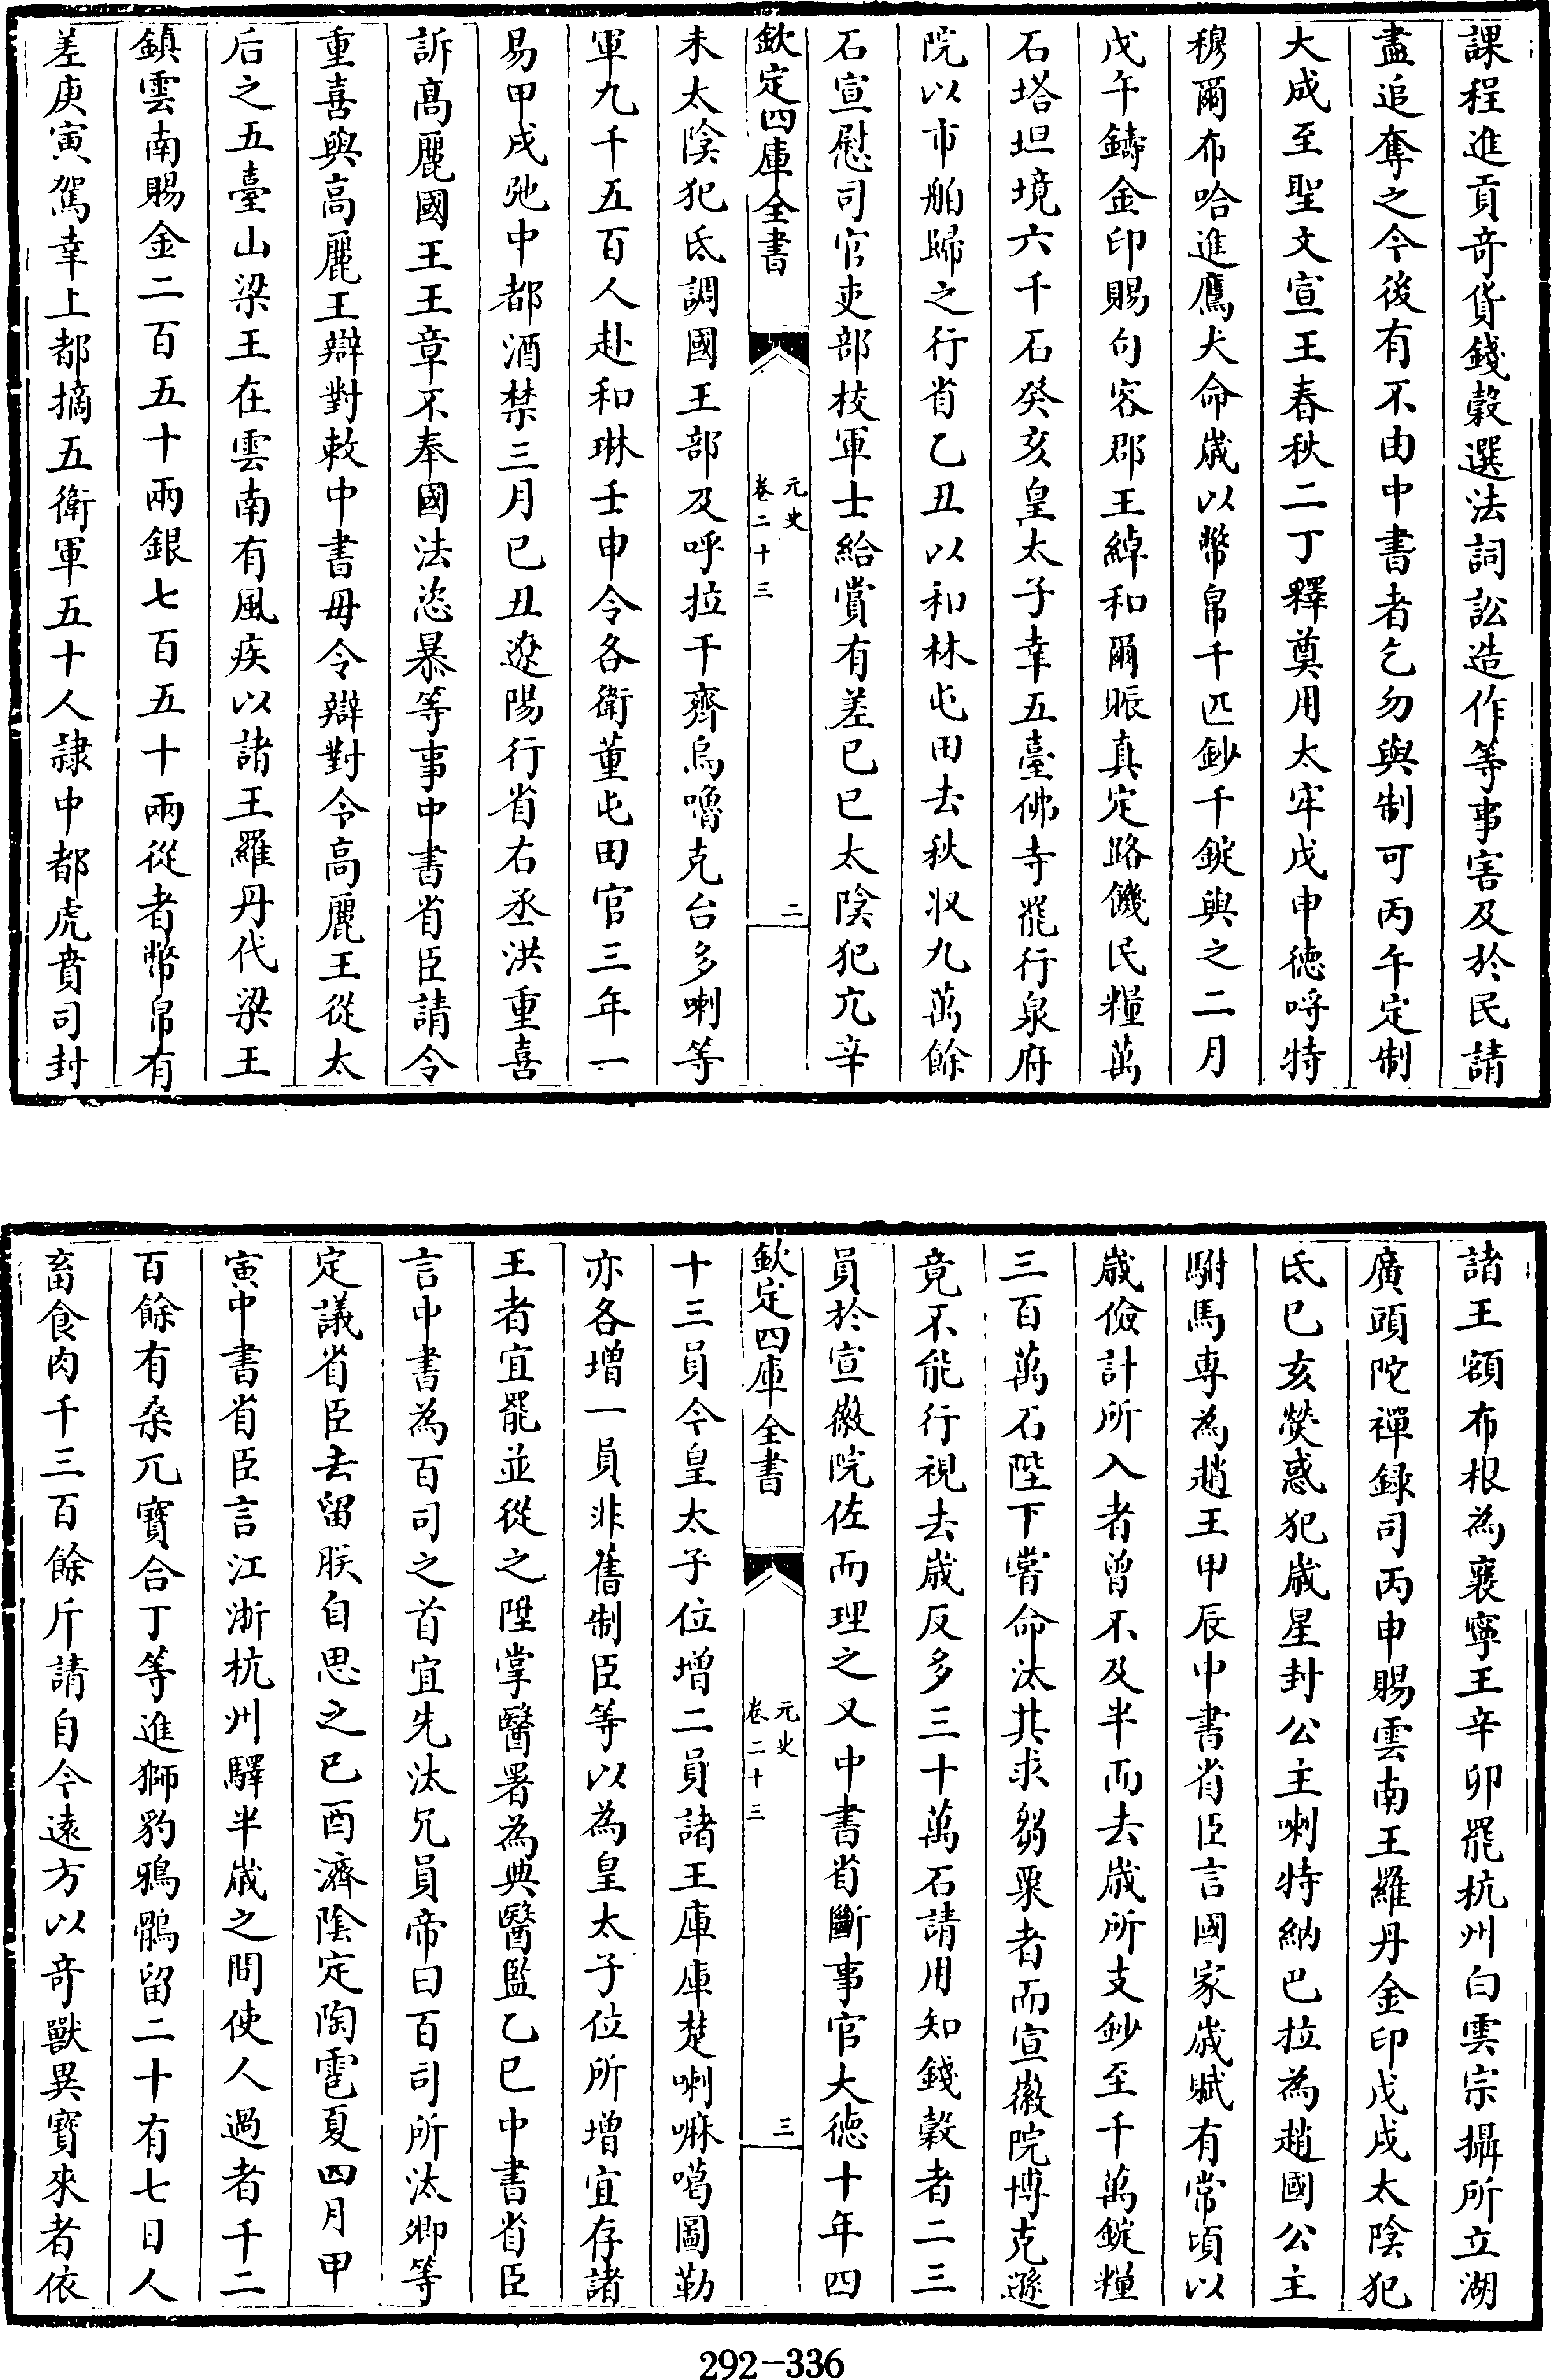 課程進貢竒貨錢穀選法詞訟造作等事害及於民請
盡追奪之今後有不由中書者乞勿與制可丙午定制
大成至聖文宣王春秋二丁釋奠用太牢戊申徳呼特
穆爾布哈進鷹犬命歳以幣帛千匹鈔千錠與之二月
戊午鑄金印賜句容郡王綽和爾賑真定路饑民糧萬
石塔坦境六千石癸亥皇太子幸五臺佛寺罷行泉府
院以市舶歸之行省乙丑以和林屯田去秋收九萬餘
石宣慰司官吏部校軍士給賞有差已巳太陰犯亢辛
欽定四庫全書
元史
卷二十三
二
未太陰犯氐調國王部及呼拉干齊烏嚕克台多喇等
軍九千五百人赴和琳壬申令各衛董屯田官三年一
易甲戌弛中都酒禁三月已丑遼陽行省右丞洪重喜
訴高麗國王王章不奉國法恣暴等事中書省臣請令
重喜與高麗王辯對敕中書毋令辯對令高麗王從太
后之五臺山梁王在雲南有風疾以諸王羅丹代梁王
鎮雲南賜金二百五十兩銀七百五十兩從者幣帛有
差庚寅駕幸上都摘五衛軍五十人隷中都虎賁司封
諸王額布根為襄寧王辛卯罷杭州白雲宗攝所立湖
廣頭陀禪録司丙申賜雲南王羅丹金印戊戌太陰犯
氐已亥熒惑犯歳星封公主喇特納巴拉為趙國公主
駙馬専為趙王甲辰中書省臣言國家歳賦有常頃以
歳儉計所入者曾不及半而去歳所支鈔至千萬錠糧
三百萬石陛下嘗命汰其求芻粟者而宣徽院博克遜
竟不能行視去歳反多三十萬石請用知錢穀者二三
員於宣徽院佐而理之又中書省斷事官大徳十年四
欽定四庫全書
元史
卷二十三
三
十三員今皇太子位增二員諸王庫庫楚喇嘛噶圖勒
亦各增一員非舊制臣等以為皇太子位所增宜存諸
王者宜罷並從之陞掌醫署為典醫監乙巳中書省臣
言中書為百司之首宜先汰冗員帝曰百司所汰卿等
定議省臣去留朕自思之已酉濟隂定陶雹夏四月甲
寅中書省臣言江浙杭州驛半歳之間使人過者千二
百餘有桑兀寶合丁等進獅豹鴉鶻留二十有七日人
畜食肉千三百餘斤請自今逺方以竒獸異寳來者依
292-336